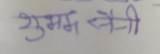 शुभम सैनी